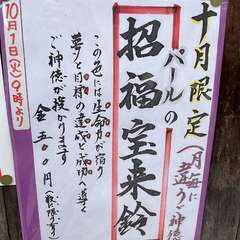 十月限定
パールの
招福宝来鈴
一月毎に
違うご神徳
この色には生命力が宿り
夢や目標の達成と成功へ導く
ご神徳が授かります
金五〇〇円(数に限り有り)
10月1日(火)9時より